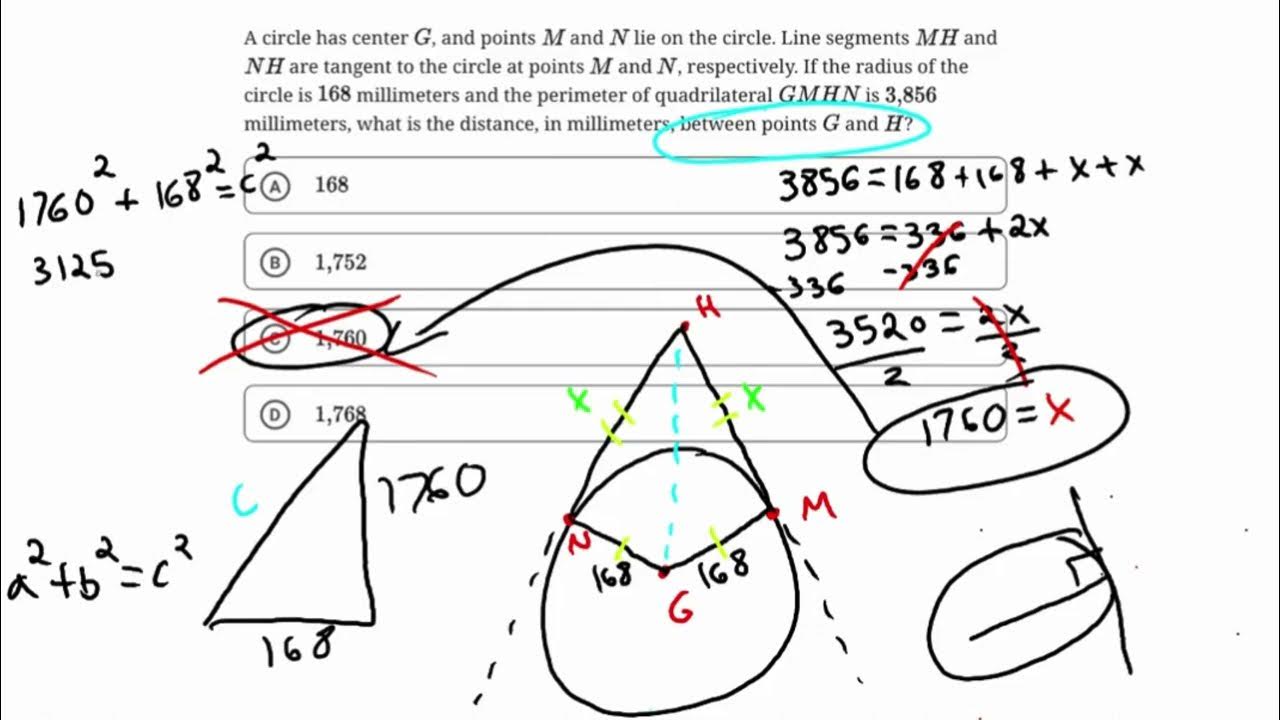 A circle has center G, and points M and N lie on the circle. Line segments MH and
NH are tangent to the circle at points M and N, respectively. If the radius of the
circle is 168 millimeters and the perimeter of quadrilateral GMHN is 3,856
millimeters, what is the distance, in millimeters, between points G and H?
1760² + 168² = c²
3125
A 168
B 1,752
C 1,760
D 1,768
3856 = 168 + 168 + x + x
3856 = 336 + 2x
-336 -336
3520 = 2x
2 2
1760 = x
H
x x
N M
168 168
G
c 1760
a² + b² = c²
168